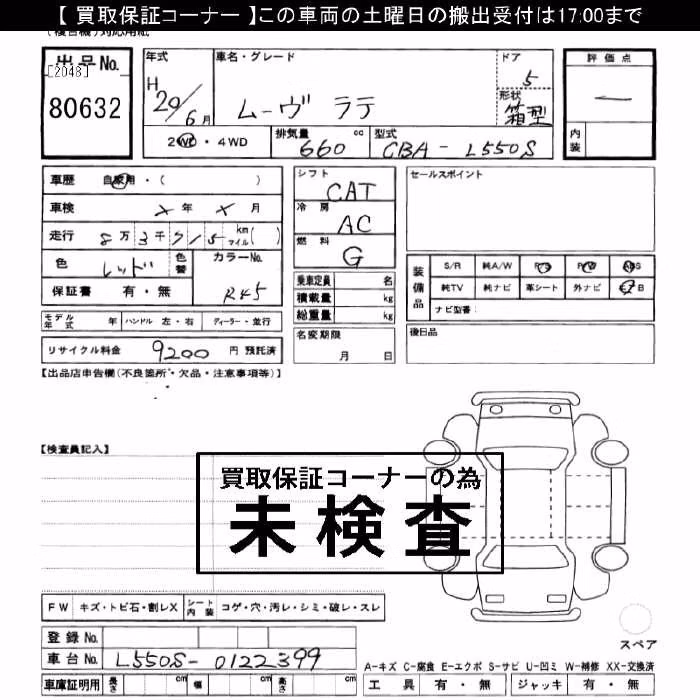 【 買取保証コーナー 】この車両の土曜日の搬出受付は17:00まで
出品No.
[2048]
80632
年式
H
20/6月
車名・グレード
ムーヴ ラテ
ドア
5
形状
箱型
評価点
―
内装
2WD・4WD
排気量
660
cc
型式
CBA-L550S
車歴
自家用・( )
車検
× 年 × 月
走行
8万3千715
km
マイル( )
色
レッド
色替
カラーNo.
R45
保証書
有・無
シフト
CAT
冷房
AC
燃料
G
乗車定員
名
積載量
kg
総重量
kg
セールスポイント
装備品
S/R
純A/W
P/S
P/W
ABS
純TV
純ナビ
革シート
外ナビ
エアB
ナビ型番:
モデル年式
年
ハンドル
左・右
ディーラー・並行
名変期限
月 日
後日品
リサイクル料金
9200
円 預託済
【出品店申告欄(不良箇所・欠品・注意事項等)】
【検査員記入】
買取保証コーナーの為
未検査
FW
キズ・トビ石・割レX
シート内装
コゲ・穴・汚レ・シミ・破レ・スレ
登録No.
車台No.
L550S-0122399
スペア
A-キズ C-腐食 E-エクボ S-サビ U-凹ミ W-補修 XX-交換済
車庫証明用
長さ
cm
幅
cm
高さ
cm
工具
有・無
ジャッキ
有・無